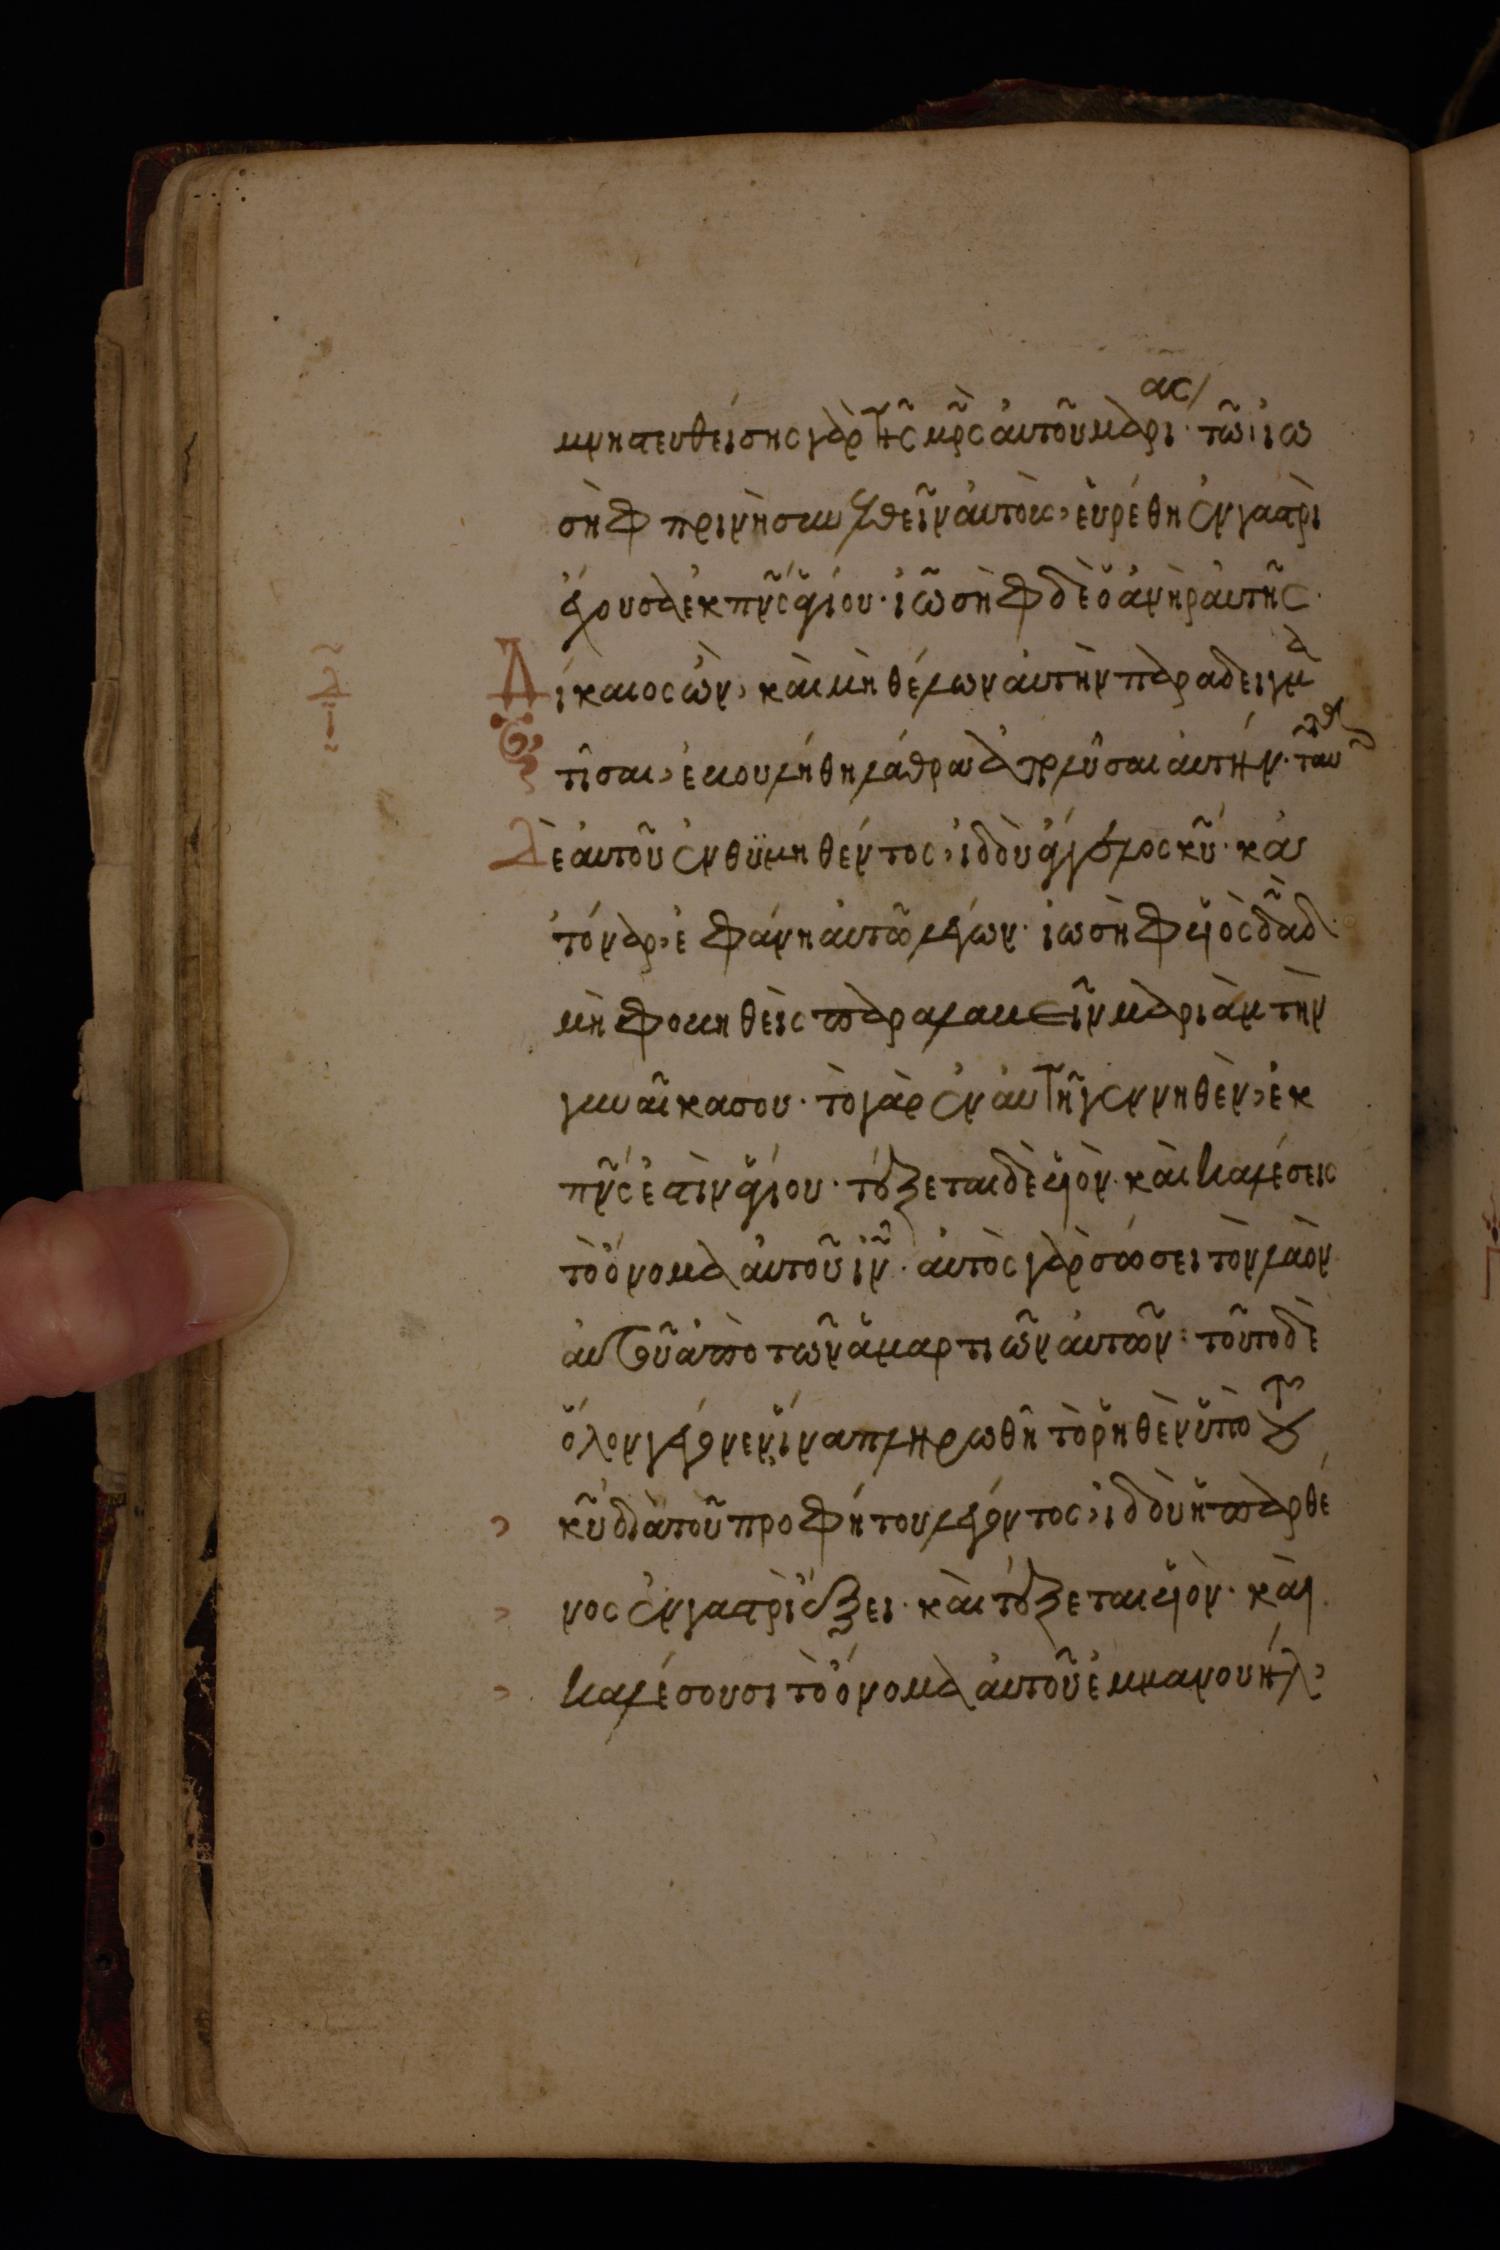 ας
μνηστευθείσης γὰρ τῆς μρ̅ς αὐτοῦ μαρι· τῶ ἰω
σὴφ πρινὴ συνελθεῖν αὐτοὺς, εὑρέθη ἐν γαστρὶ
ἔχουσα ἐκ πν̅ς ἁγίου· ἰωσὴφ δὲ ὁ ἀνὴρ αὐτῆς·
Δίκαιος ὢν, καὶ μὴ θέλων αὐτὴν παραδειγμα
τίσαι, ἐβουλήθη λάθρα ἀπολῦσαι αὐτήν· ταῦτα
δὲ αὐτοῦ ἐνθυμηθέντος, ἰδοὺ ἄγγελος κυ̅· κατ
ὄναρ, ἐφάνη αὐτῶ λέγων· ἰωσὴφ υἱὸς δα̅δ·
μὴ φοβηθεὶς παραλαβεῖν μαριὰμ τὴν
γυναῖκα σου· τὸ γὰρ ἐν αὐτῆ γεννηθὲν, ἐκ
πν̅ς ἐστὶν ἁγίου· τέξεται δὲ υἱὸν· καὶ καλέσεις
τὸ ὄνομα αὐτοῦ ιν̅· αὐτὸς γὰρ σώσει τὸν λαὸν
αὐτοῦ ἀπὸ τῶν ἁμαρτιῶν αὐτῶν: τοῦτο δὲ
ὅλον γέγονεν, ἵνα πληρωθῆ τὸ ῥηθὲν ὑπὸ τοῦ
κυ̅ διὰ τοῦ προφήτου λέγοντος, ἰδοὺ ἡ παρθέ
νος ἐν γαστρὶ ἕξει· καὶ τέξεται υἱὸν· καὶ
καλέσουσι τὸ ὄνομα αὐτοῦ ἐμμανουήλ,